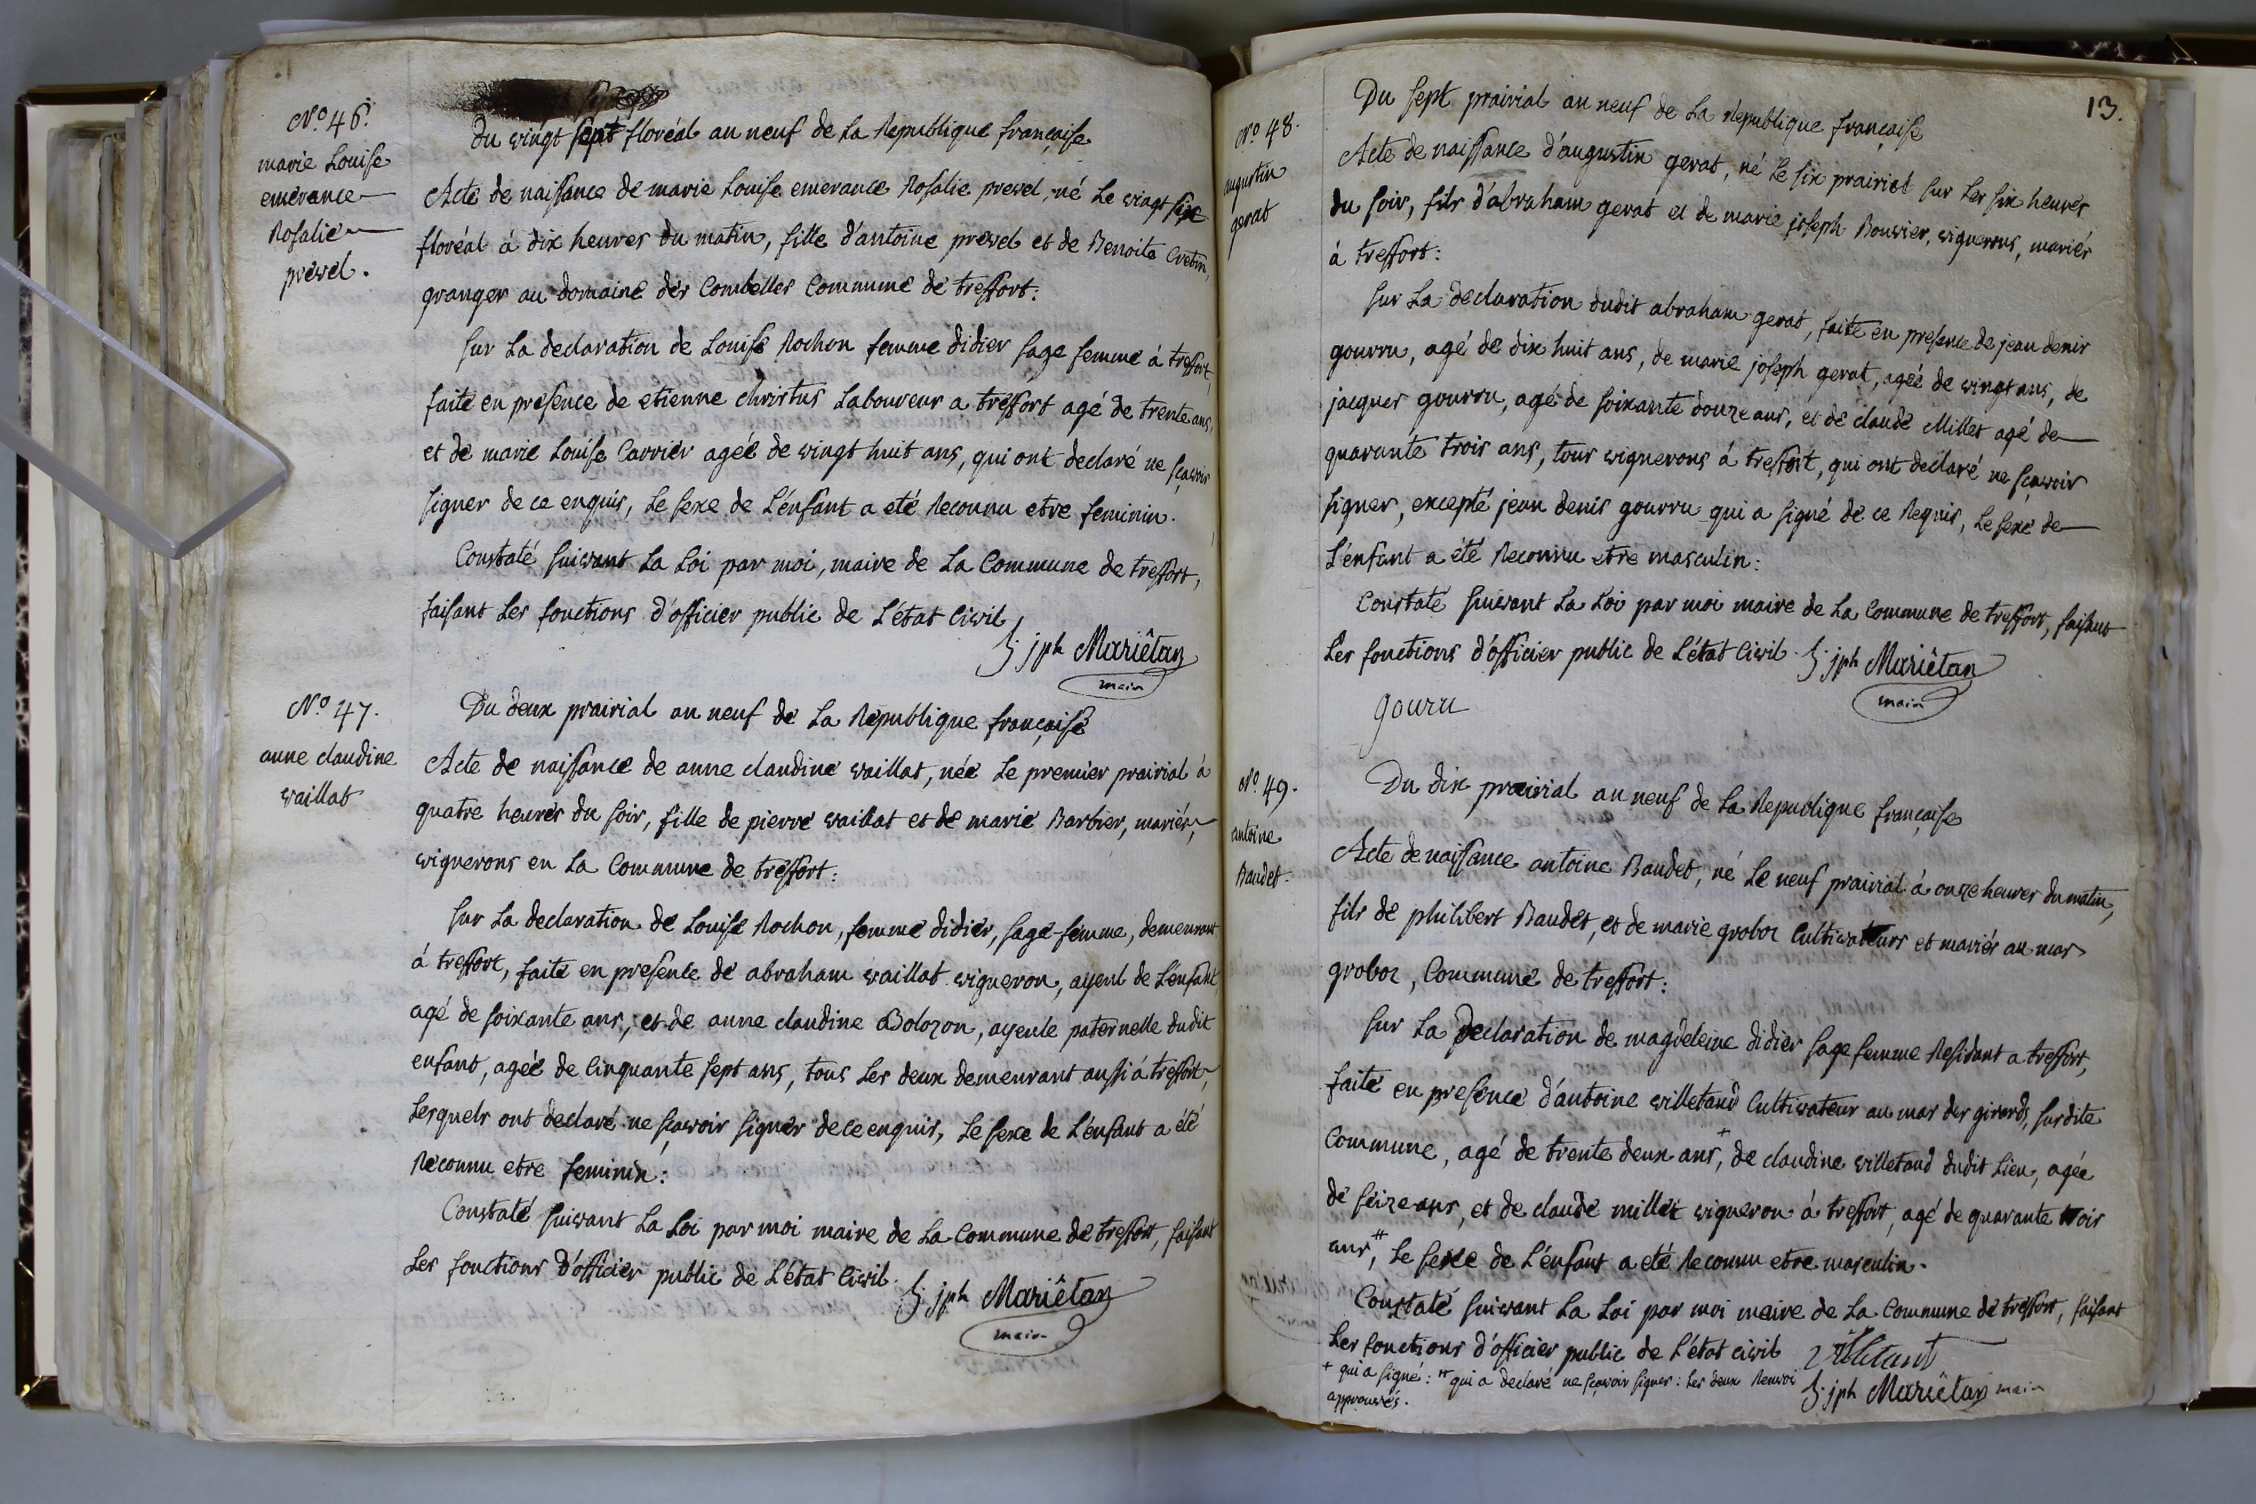 N.o 46.
marie Louise
emerance
Rosalie
prevel.
Du vingt sept floréal an neuf de La Republique française
Acte de naissance de marie Louise emerance Rosalie prevel, né Le vingt six
floréal à dix heures du matin, fille d'antoine prevel et de Benoite Cretin,
granger au domaine des Combelles Commune de treffort:
sur La declaration de Louise Rochon femme didier sage femme à treffort,
faite en presence de etienne christus Laboureur a treffort agé de trente ans,
et de marie Louise Carrier agée de vingt huit ans, qui ont declaré ne sçavoir
signer de ce enquis, Le sexe de L'enfant a eté Reconnu etre feminin.
Constaté suivant La Loi par moi, maire de La Commune de treffort,
faisant Les fonctions d'officier public de L'état Civil
jph Mariêtan
maire
N.o 47.
anne claudine
vaillat
Du deux prairial an neuf de La Republique française
Acte de naissance de anne claudine vaillat, née Le premier prairial à
quatre heures du soir, fille de pierre vaillat et de marie Barbier, mariés,
vignerons en La Commune de treffort:
sur La declaration de Louise Rochon, femme didier, sage-femme, demeurant
à treffort, faite en presence de abraham vaillat vigneron, ayeul de L'enfant,
agé de soixante ans, et de anne claudine Bolozon, ayeule paternelle dudit
enfant, agée de Cinquante sept ans, tous Les deux demeurant aussi à treffort,
Lesquels ont declaré ne sçavoir signer de ce enquis, Le sexe de L'enfant a été
Reconnu etre feminin:
Constaté suivant La Loi par moi maire de La Commune de treffort, faisant
Les fonctions d'officier public de L'état Civil.
jph Mariêtan
maire
13.
N.o 48.
augustin
gerat
Du sept prairial an neuf de La Republique française
Acte de naissance d'augustin gerat, né Le six prairial sur Les six heures
du soir, fils d'abraham gerat et de marie joseph Bouvier, vignerons, mariés
à treffort:
sur La declaration dudit abraham gerat, faite en presence de jean denis
gourru, agé de dix huit ans, de marie joseph gerat, agée de vingt ans, de
jacques gourru, agé de soixante douze ans, et de claude Millet agé de
quarante trois ans, tous vignerons à treffort, qui ont declaré ne sçavoir
signer, excepté jean denis gourru qui a signé de ce Requis, Le sexe de
L'enfant a été Reconnu etre masculin:
Constaté suivant La Loi par moi maire de La Commune de treffort, faisant
Les fonctions d'officier public de L'état Civil. jph Mariêtan
maire
gouru
N.o 49.
antoine
Baudet.
Du dix prairial an neuf de La Republique française
Acte de naissance antoine Baudet, né Le neuf prairial à onze heures du matin,
fils de philibert Baudet, et de marie groboz Cultivateurs et mariés au mas
groboz, Commune de treffort:
sur La declaration de magdeleine didier sage femme Residant a treffort,
faite en presence d'antoine villetaud Cultivateur au mas des girards, surdite
Commune, agé de trente deux ans,+ de claudine villetaud dudit Lieu, agée
de seize ans, et de claude millet vigneron à treffort, agé de quarante trois
ans,# Le sexe de L'enfant a eté Reconnu etre masculin.
Constaté suivant La Loi par moi maire de La Commune de treffort, faisant
Les fonctions d'officier public de L'état civil
+ qui a signé: # qui a declaré ne sçavoir signer: Les deux Renvoi
approuvés.
jph Mariêtan maire